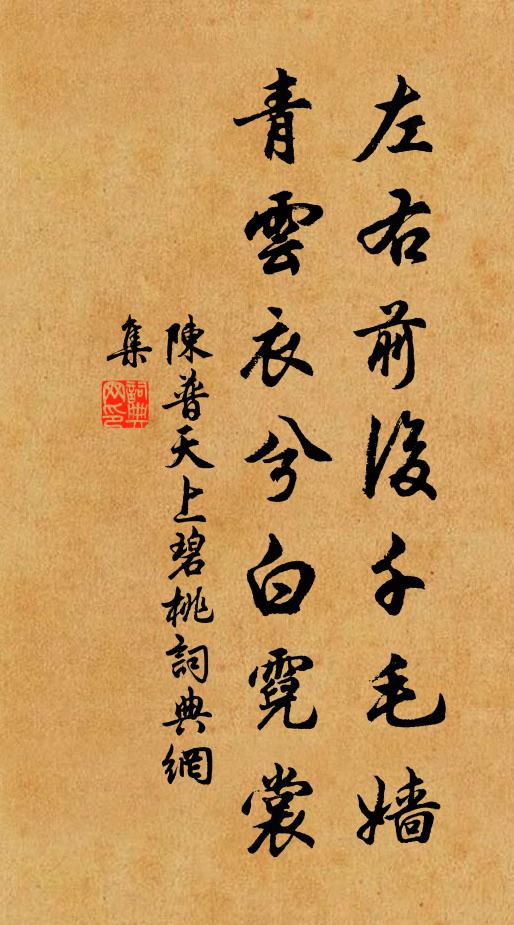 左右前後千毛嬙
青雲衣兮白霓裳
陳普天上碧桃詞典網
集
詞典网印